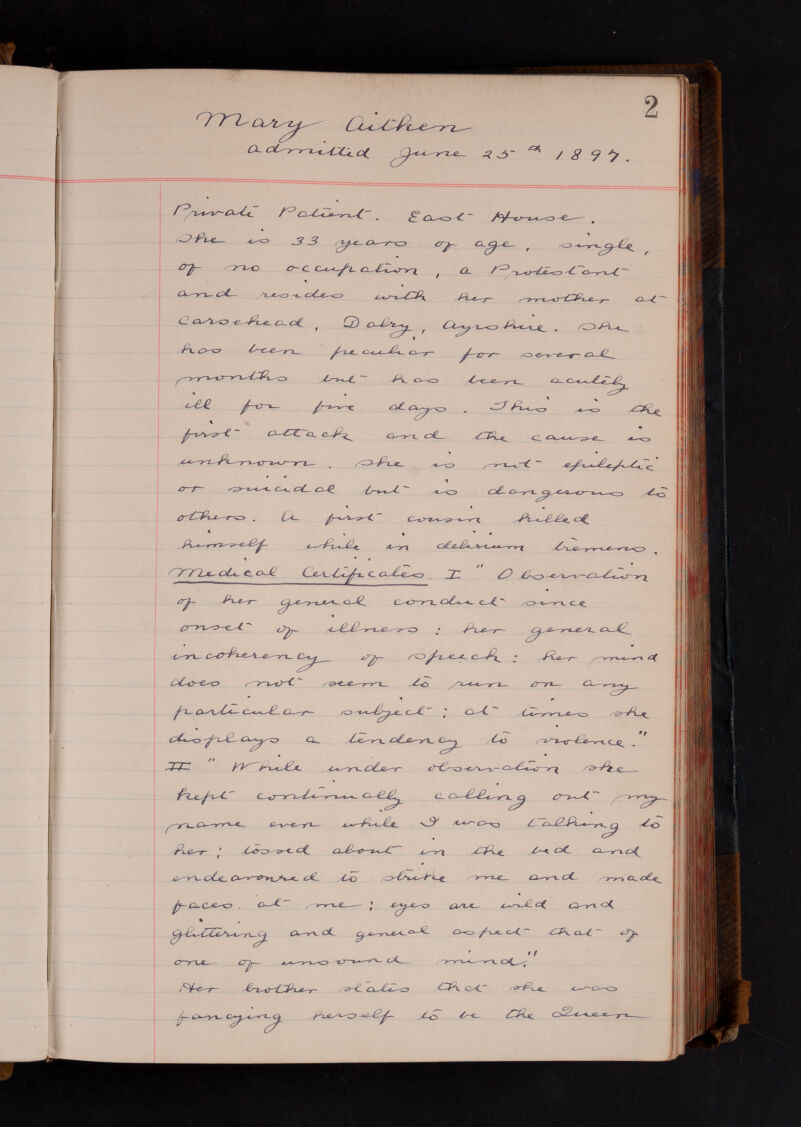 2
Mary Aitken
admitted June 25th 1897.
Private Patient. East House.
She is 33 years of age, single,
of no occupation, a Protestant
and resides with her mother at
Carsehead, Dalry, Ayrshire. She
has been peculiar for several
months but has been acutely
ill for five days. This is the
first attack and the cause is
unknown. She is not epileptic
or suicidal but is dangerous to
others. A first cousin killed
himself while in delirium tremens.
Medical Certificates. I "Observation
of her general conduct since
onset of illness: her general
incoherency of speech: her mind
does not seem to run on any
particular subject: at times she
displays a tendency to violence."
II "While under observation she
kept continually calling out my
name even while I was talking to
her; tossed about in the bed and
endeavoured to strike me and made
faces at me: eyes are wild and
glittering and general aspect that of
one of unsound mind."
Her brother states that she was
fancying herself to be the Queen